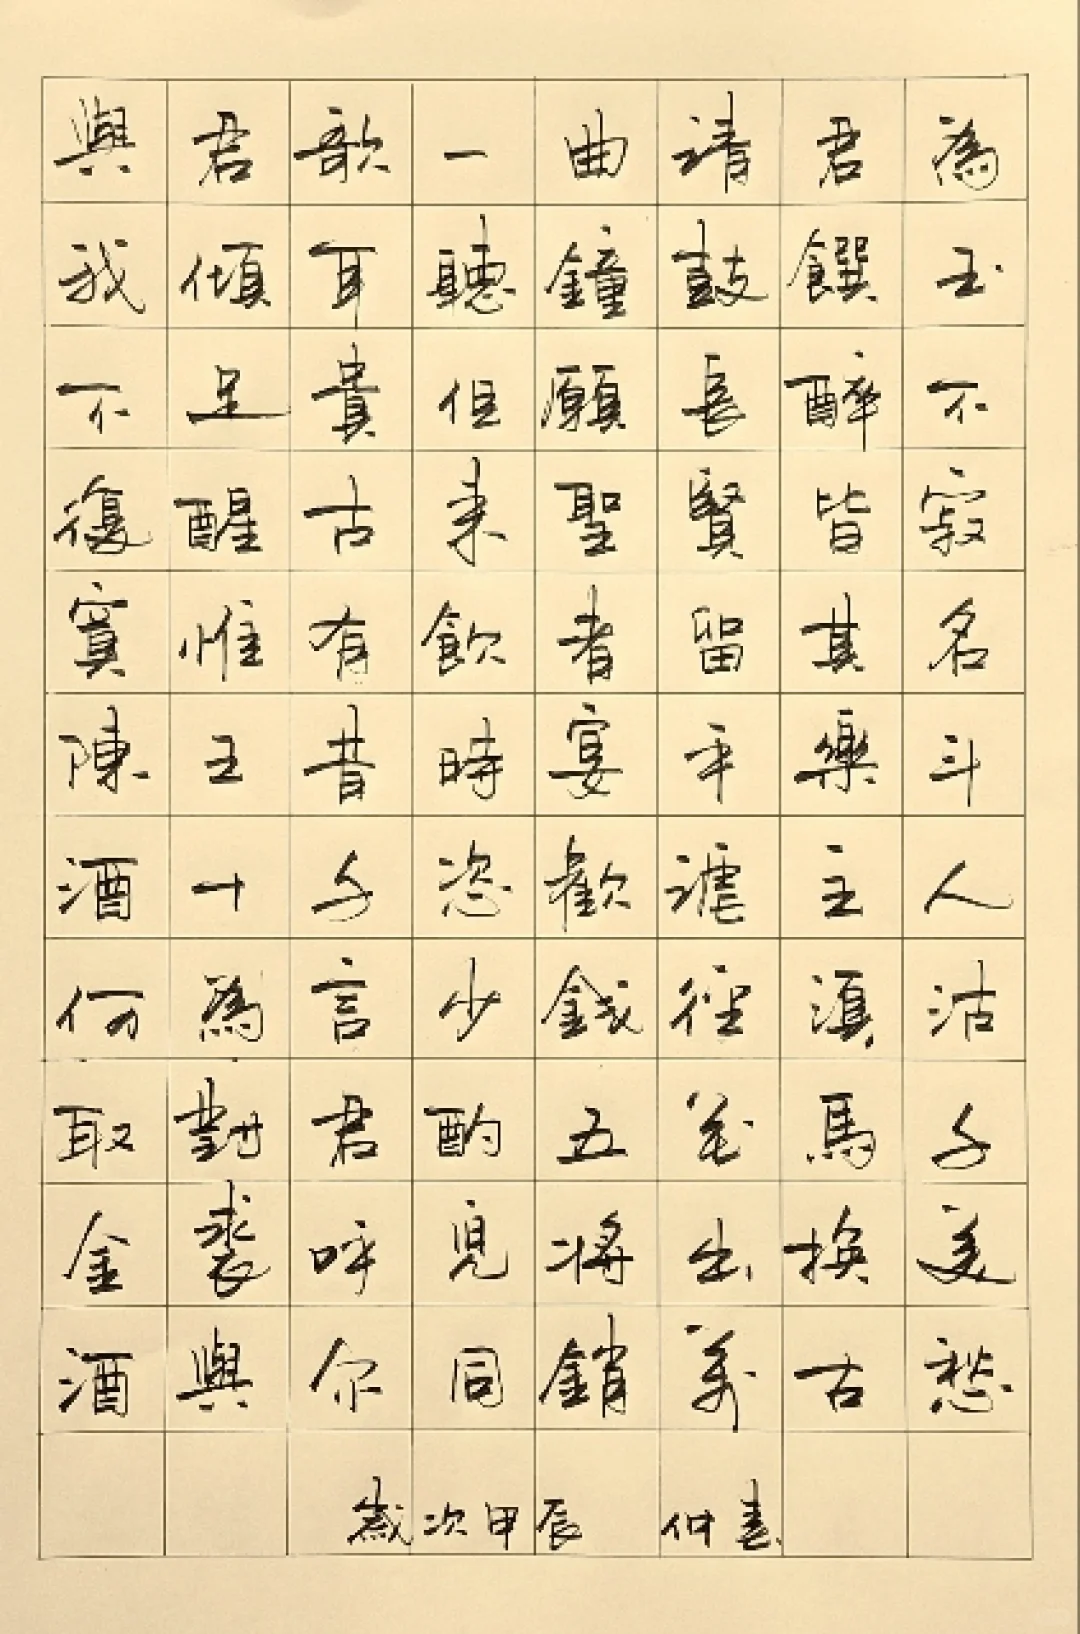 與君歌一曲請君為
我傾耳聽鐘鼓饌玉
不足貴但願長醉不
復醒古来聖賢皆寂
寞惟有飲者留其名
陳王昔時宴平樂斗
酒十千恣歡謔主人
何為言少錢徑須沽
取對君酌五花馬千
金裘呼兒將出換美
酒與尔同銷萬古愁
歲次甲辰 仲春